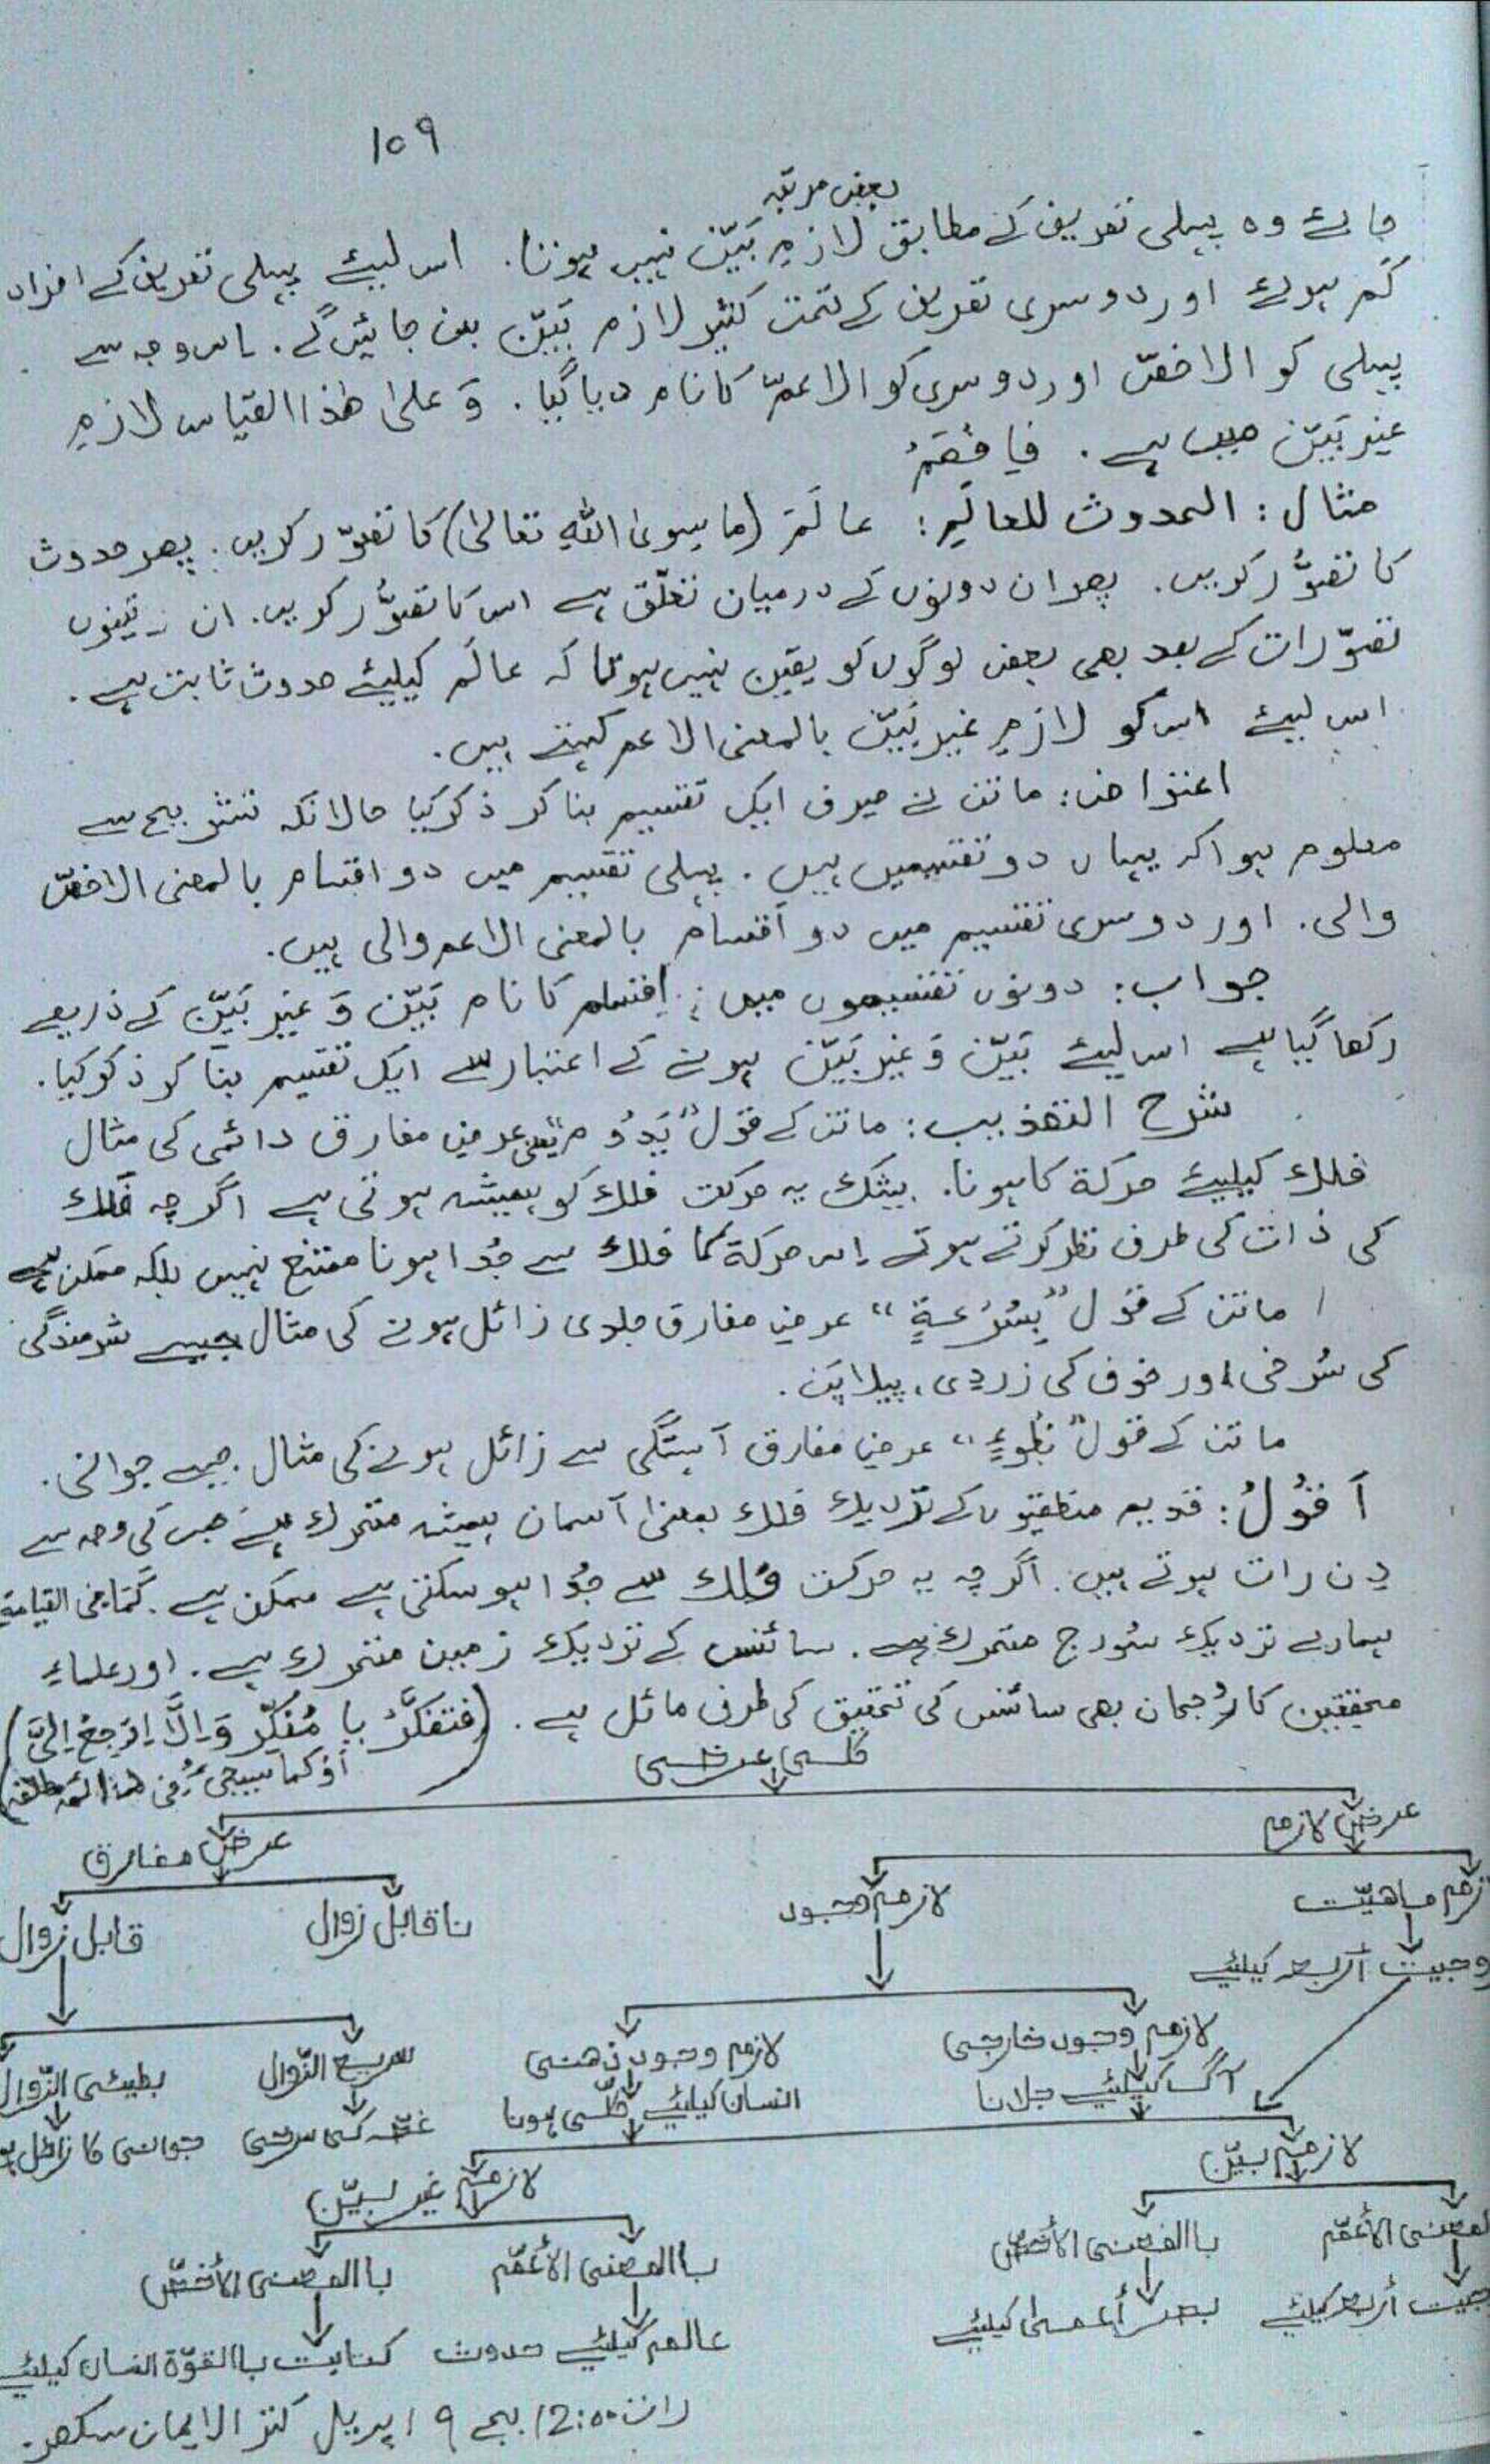 ۱۰۹
بعض مرتبہ
جائے وہ پہلی تعریف کے مطابق لازمِ بَیِّن نہیں ہوتا. اس لیئے پہلی تعریف کے افراد
کم ہوئے اور دوسری تعریف کے تحت کثیر لازم بَیِّن بن جائیں گے. اس وجہ سے
پہلی کو الاخصّ اور دوسری کو الاعمّ کا نام دیا گیا. وَ علیٰ ھٰذا القیاس لازمِ
غیر بَیِّن میں ہے. فَافْھَمْ
مثال: الحدوث للعالَمِ: عالَم (ماسِوی اللّٰهِ تعالیٰ) کا تصوّر کریں. پھر حدوث
کا تصوُّر کریں. پھر ان دونوں کے درمیان تعلّق ہے اس کا تصوُّر کریں. ان تینوں
تصوّرات کے بعد بھی بعض لوگوں کو یقین نہیں ہوتا کہ عالَم کیلیئے حدوث ثابت ہے.
اس لیئے اس کو لازمِ غیر بَیِّن بالمعنی الاعم کہتے ہیں.
اعتراض: ماتن نے صرف ایک تقسیم بنا کر ذکر کیا حالانکہ تشریح سے
معلوم ہوا کہ یہاں دو تقسیمیں ہیں. پہلی تقسیم میں دو اقسام بالمعنی الاخصّ
والی. اور دوسری تقسیم میں دو اَقسام بالمعنی الاعم والی ہیں.
جواب: دونوں تقسیموں میں اقسام کا نام بَیِّن وَ غیر بَیِّن کے ذریعے
رکھا گیا ہے اس لیئے بَیِّن وَ غیر بَیِّن ہونے کے اعتبار سے ایک تقسیم بنا کر ذکر کیا.
شرح التھذیب: ماتن کے قول "یَدُوْم" یعنی عرضِ مفارق دائمی کی مثال
فلك کیلیئے حرکة کا ہونا. بیشک یہ حرکت فلك کو ہمیشہ ہوتی ہے اگرچہ فلك
کی ذات کی طرف نظر کرتے ہوئے اس حرکة کا فلك سے جُدا ہونا ممتنع نہیں بلکہ ممکن ہے
ماتن کے قول "بِسُرْعَةٍ" عرضِ مفارق جلدی زائل ہونے کی مثال جیسے شرمندگی
کی سُرخی اور خوف کی زردی، پیلاپَن.
ماتن کے قول "بُطُوءٍ" عرضِ مفارق آہستگی سے زائل ہونے کی مثال. جیسے جوانی.
اَقُوْلُ: قدیم منطقیوں کے نزدیك فلك بمعنی آسمان ہمیشہ متحرك ہے جس کی وجہ سے
دِن رات ہوتے ہیں. اگرچہ یہ حرکت فلك سے جُدا ہو سکتی ہے ممکن ہے. کَمَا فی القیامة
ہمارے نزدیك سُورج متحرك ہے. سائنس کے نزدیك زمین متحرك ہے. اور علماءِ
محققین کا رُجحان بھی سائنس کی تحقیق کی طرف مائل ہے. (فَتَفَکَّرْ یا مُفَکِّر وَ اِلَّا اِرْجِعْ اِلَیَّ)
اَوْ کما سیجیْءُ فی ھذا
کلی عرضی
عرض لازم
عرض مفارق
لازم ماھیّت
لازم وجود
ناقابل زوال
قابل زوال
زوجیت أربعہ کیلئیے
لازم وجود خارجی
لازم وجود ذھنی
سریع الزّوال
بطیئی الزّوال
آگ کیلئیے جلانا
انسان کیلئیے کلّی ہونا
غصّہ کی سرخی
جوانی کا زائل
لازم بیّن
لازم غیر بیّن
بالمعنی الأعمّ
باالمعنی الأخصّ
باالمعنی الأعمّ
باالمعنی الأخصّ
زوجیت أربعہ کیلئیے
بصر أعمیٰ کیلئیے
عالم کیلئیے حدوث
کتابت باالقوّة انسان کیلئیے
رات 12:00 بجے ۹ اپریل کنز الایمان سکھر.